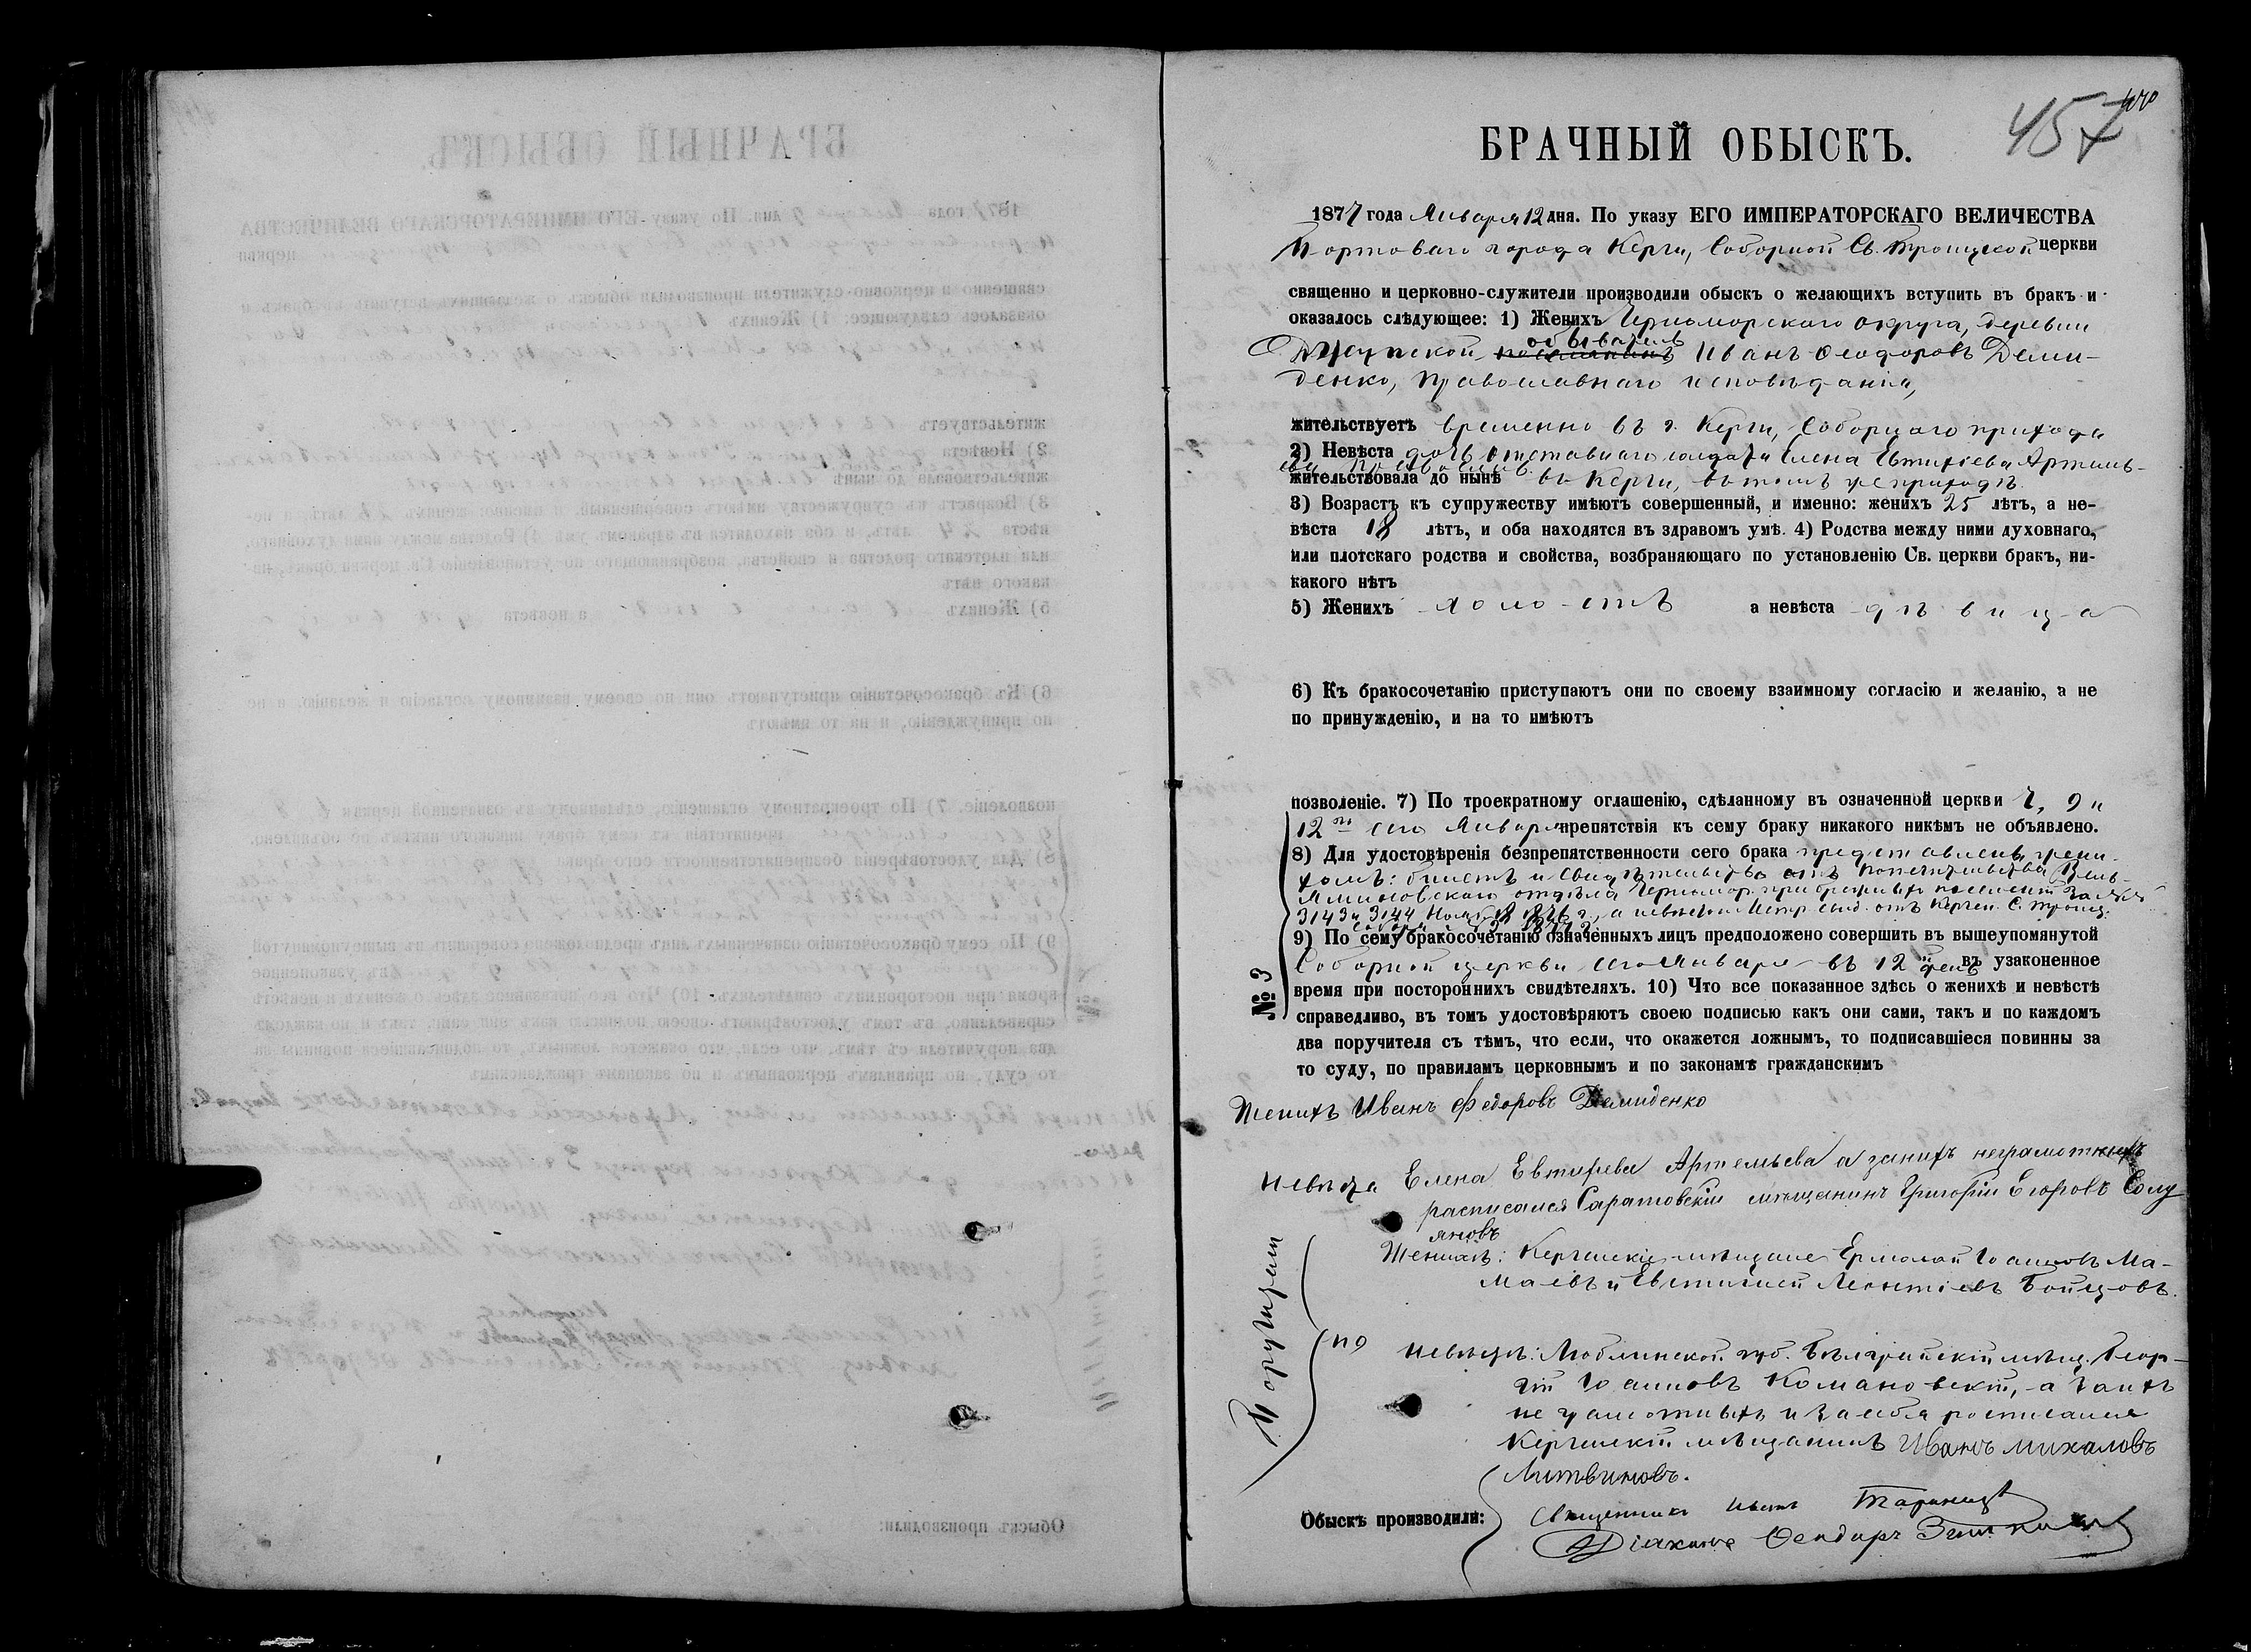 457
БРАЧНЫЙ ОБЫСКЪ.
1877 года Января 12 дня. По указу ЕГО ИМПЕРАТОРСКАГО ВЕЛИЧЕСТВА
Портоваго города Керчи, Соборной Св. Троицкой церкви
священно и церковно-служители производили обыскъ о желающихъ вступить въ бракъ и
оказалось слѣдующее: 1) Женихъ Черноморскаго округа, деревни
обыватель
поселянинъ Иванъ Ѳеодоровъ Деми-
денко, православнаго исповѣданія,
жительствуетъ временно въ г. Керчи, Соборнаго прихода
2) Невѣста дочь отставнаго солдата Елена Евтихіева Артемь-
ева
жительствовала до нынѣ въ Керчи, въ томъ же приходѣ
3) Возрастъ къ супружеству имѣютъ совершенный, и именно: женихъ 25 лѣтъ, а не-
вѣста 18 лѣтъ, и оба находятся въ здравомъ умѣ. 4) Родства между ними духовнаго,
или плотскаго родства и свойства, возбраняющаго по установленію Св. церкви бракъ, ни-
какого нѣтъ
5) Женихъ холостъ а невѣста дѣвица
6) Къ бракосочетанію приступаютъ они по своему взаимному согласію и желанію, а не
по принужденію, и на то имѣютъ
позволеніе. 7) По троекратному оглашенію, сдѣланному въ означенной церкви 7, 9 и
12го сего Января препятствія къ сему браку никакого никѣмъ не объявлено.
8) Для удостовѣренія безпрепятственности сего брака представлены жени-
хомъ: билетъ и свидѣтельство отъ Попечительства Вель-
яминовскаго отдѣла Черномор. прибрежныхъ поселеній за №№
3143 и 3144 Нояб. 18 1876 г., а невѣстою Метр. свид. отъ Керчен. С. Троиц.
Собора 1877 г.
9) По сему бракосочетанію означенныхъ лицъ предположено совершить въ вышеупомянутой
Соборной церкви сего Января въ 12й день въ узаконенное
время при постороннихъ свидѣтеляхъ. 10) Что все показанное здѣсь о женихѣ и невѣстѣ
справедливо, въ томъ удостовѣряютъ своею подписью какъ они сами, такъ и по каждомъ
два поручителя съ тѣмъ, что если, что окажется ложнымъ, то подписавшіеся повинны за
то суду, по правиламъ церковнымъ и по законамъ гражданскимъ
№ 3
Женихъ Иванъ Федоровъ Демиденко
Невѣста Елена Евтифева Артемьева а занихъ неграмотныхъ
расписался Саратовскій мѣщанинъ Григорій Егоровъ Солу
яновъ
Поручители
по
Женихѣ: Керченскіе мѣщане Ермолай Іоанновъ Ма-
маевъ и Евстигней Леонтіевъ Бойцовъ.
невѣстѣ: Люблинской губ. Бѣлграйскій мѣщ. Геор-
гій Іоанновъ Комановскій, а за нихъ
неграмотныхъ и за себя росписался
Керченскій мѣщанинъ Иванъ Михаловъ
Литвиновъ.
Обыскъ производили:
Священникъ Иванъ
Діаконъ Ѳеодоръ